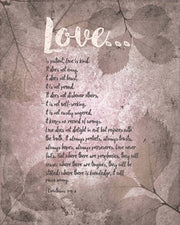 Love...
is patient, love is kind.
It does not envy,
it does not boast,
it is not proud.
It does not dishonor others,
it is not self-seeking,
it is not easily angered,
it keeps no record of wrongs.
Love does not delight in evil but rejoices with
the truth. It always protects, always trusts,
always hopes, always perseveres. Love never
fails. But where there are prophecies, they will
cease; where there are tongues, they will be
stilled; where there is knowledge, it will
pass away.
1 Corinthians